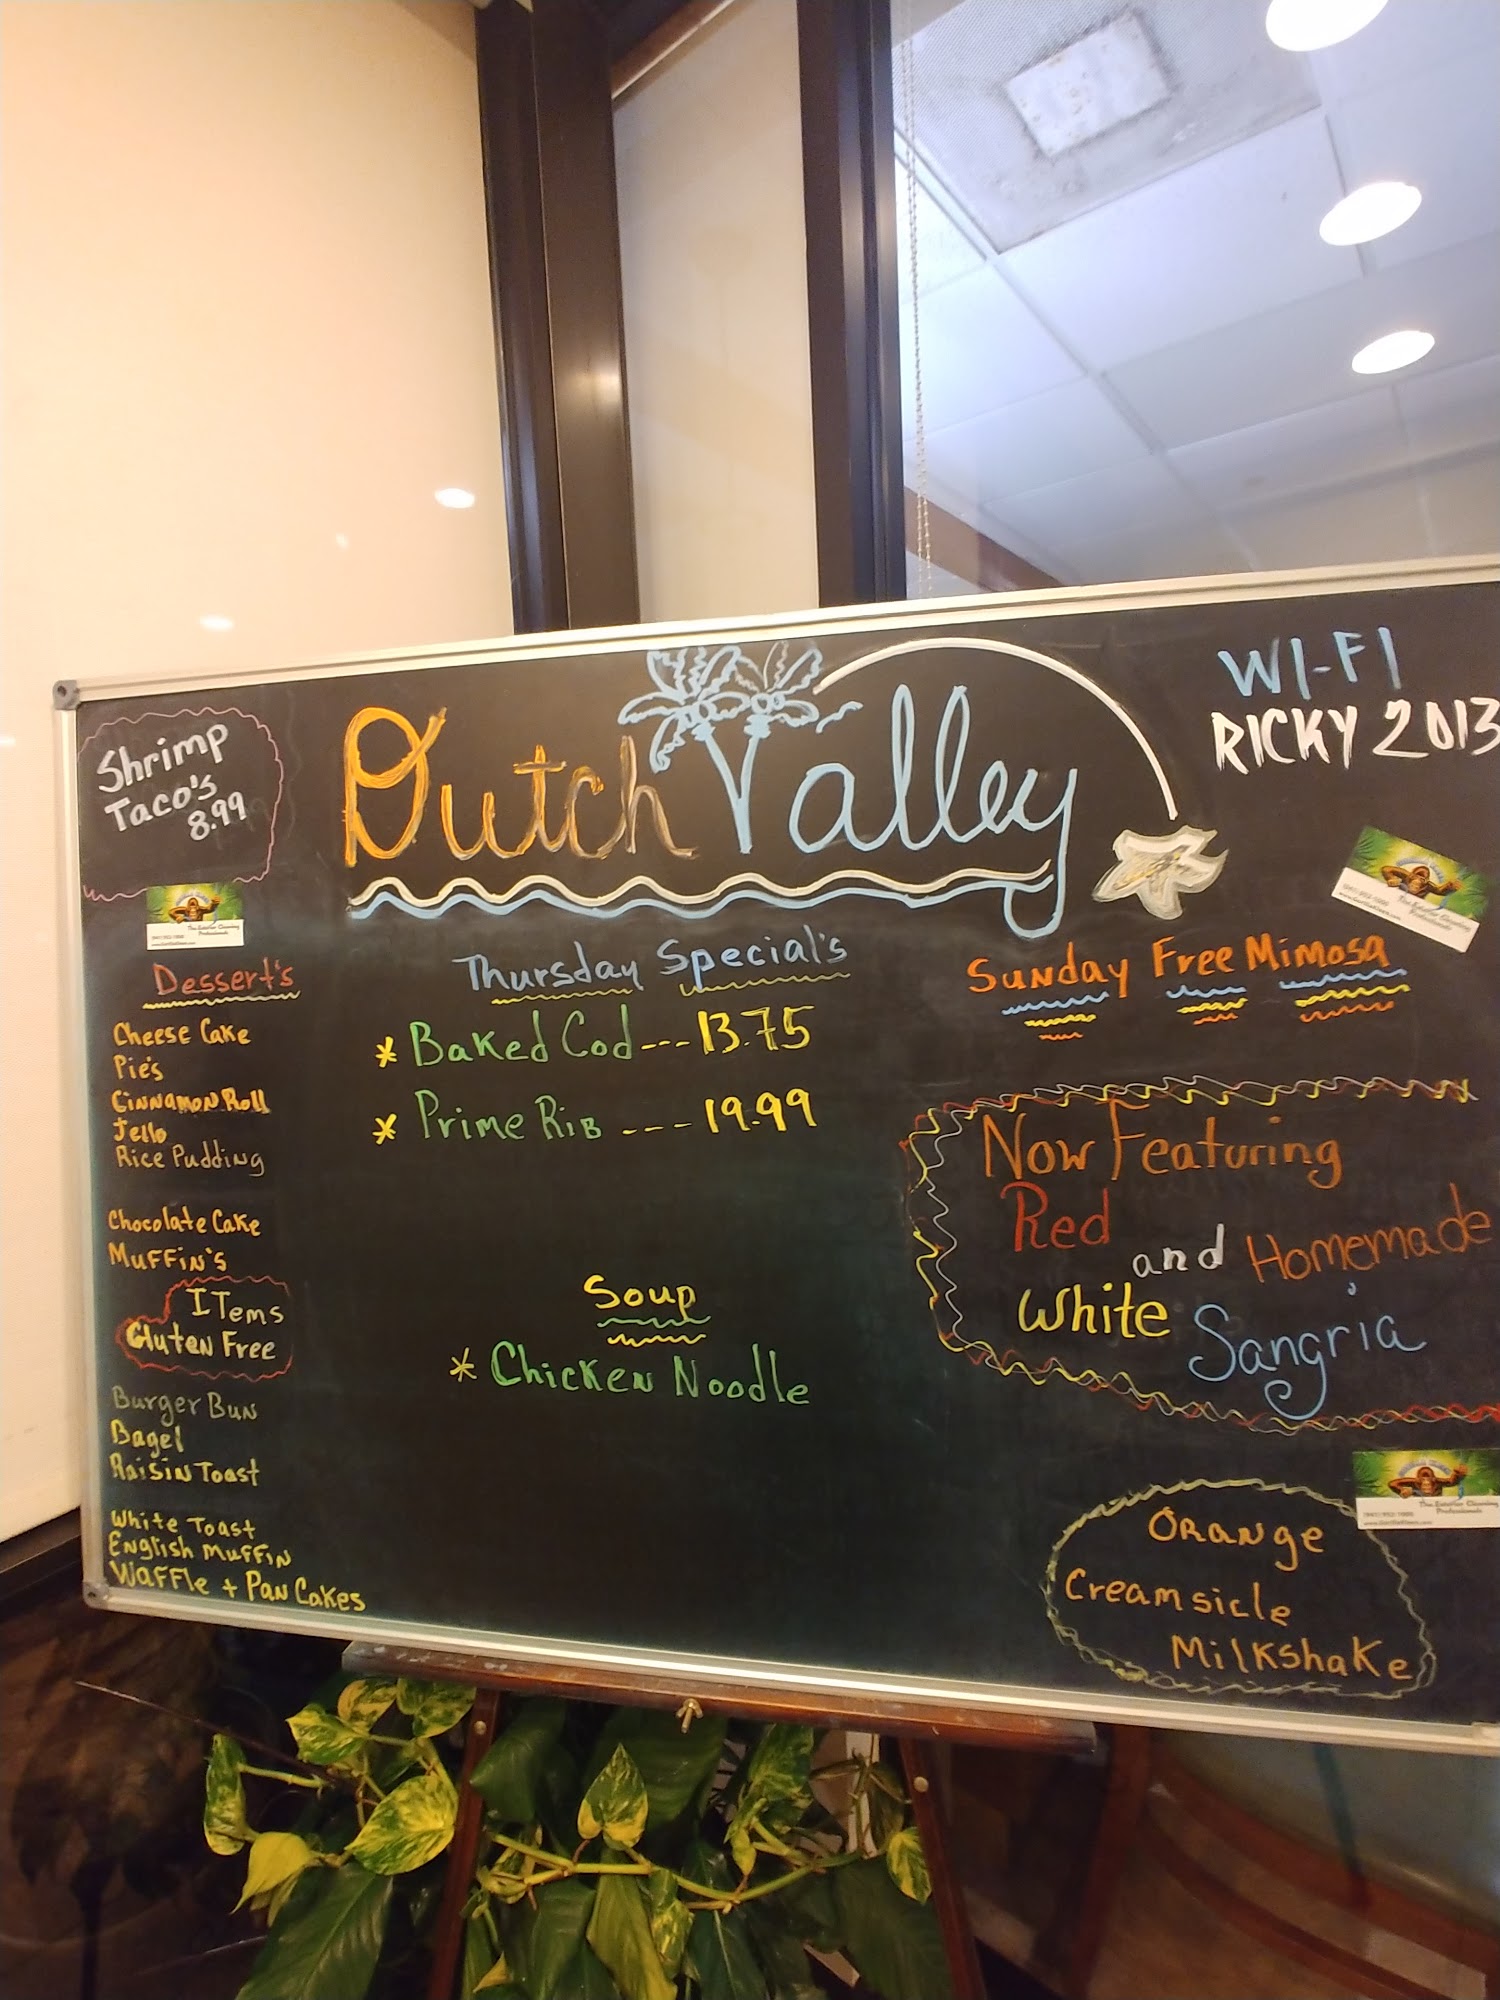 Shrimp
Taco's
8.99
Dutch Valley
WI-FI
RICKY 2013
Dessert's
Cheese Cake
Pie's
Cinnamon Roll
Jello
Rice Pudding
Chocolate Cake
Muffin's
ITems
Gluten Free
Burger Bun
Bagel
Raisin Toast
White Toast
English Muffin
Waffle + Pan Cakes
Thursday Special's
* Baked Cod --- 13.75
* Prime Rib --- 19.99
Soup
* Chicken Noodle
Sunday Free Mimosa
Now Featuring
Red
and Homemade
White
Sangria
Orange
Creamsicle
Milkshake
The Exterior Cleaning
Professionals
The Exterior Cleaning
Professionals
The Exterior Cleaning
Professionals